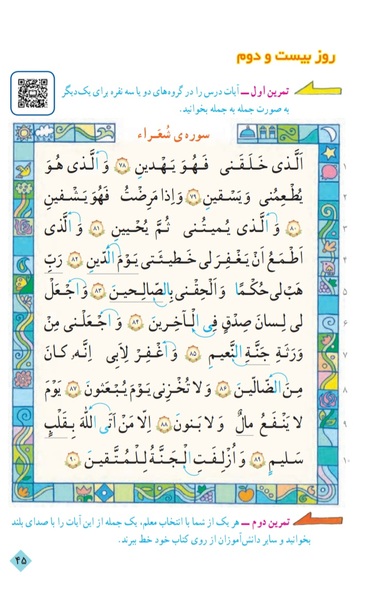 روز بیست و دوم
تمرین اول ــ آیات درس را در گروه‌های دو یا سه نفره برای یک‌دیگر
به صورت جمله به جمله بخوانید.
سوره‌ی شُعَراء
۱ اَلَّذی خَلَقَنی فَهُوَ یَهْدینِ ﴿٧٨﴾ وَ الَّذی هُوَ
۲ یُطْعِمُنی وَ یَسْقینِ ﴿٧٩﴾ وَ اِذا مَرِضْتُ فَهُوَ یَشْفینِ
۳ ﴿٨٠﴾ وَ الَّذی یُمیتُنی ثُمَّ یُحْیینِ ﴿٨١﴾ وَ الَّذی
۴ اَطْمَعُ اَنْ یَغْفِرَ لی خَطیـئَتی یَوْمَ الدّینِ ﴿٨٢﴾ رَبِّ
۵ هَبْ لی حُکْمًا وَ اَلْحِقْنی بِالصّالِحینَ ﴿٨٣﴾ وَ اجْعَلْ
۶ لی لِسانَ صِدْقٍ فِی الْآخِرینَ ﴿٨٤﴾ وَ اجْعَلْنی مِنْ
۷ وَرَثَةِ جَنَّةِ النَّعیمِ ﴿٨٥﴾ وَ اغْفِرْ لِاَبی اِنَّهُ کانَ
۸ مِنَ الضّالّینَ ﴿٨٦﴾ وَ لا تُخْزِنی یَوْمَ یُبْعَثونَ ﴿٨٧﴾ یَوْمَ
۹ لا یَنْفَعُ مالٌ وَ لا بَنونَ ﴿٨٨﴾ اِلّا مَنْ اَتَی اللّٰهَ بِقَلْبٍ
۱۰ سَلیمٍ ﴿٨٩﴾ وَ اُزْلِفَتِ الْجَنَّةُ لِلْمُتَّقینَ ﴿٩٠﴾
تمرین دوم ــ هر یک از شما با انتخاب معلم، یک جمله از این آیات را با صدای بلند
بخوانید و سایر دانش‌آموزان از روی کتاب خود خط ببرند.
۴۵